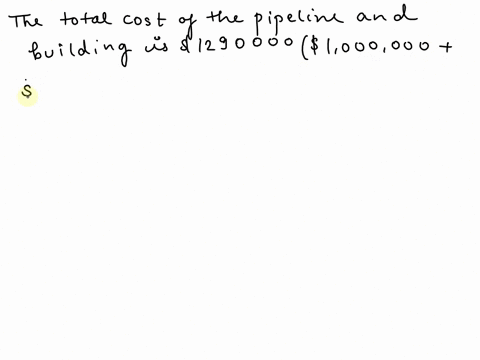 The total cost of the pipeline and
building is $1290000 ($1,000,000 +
$